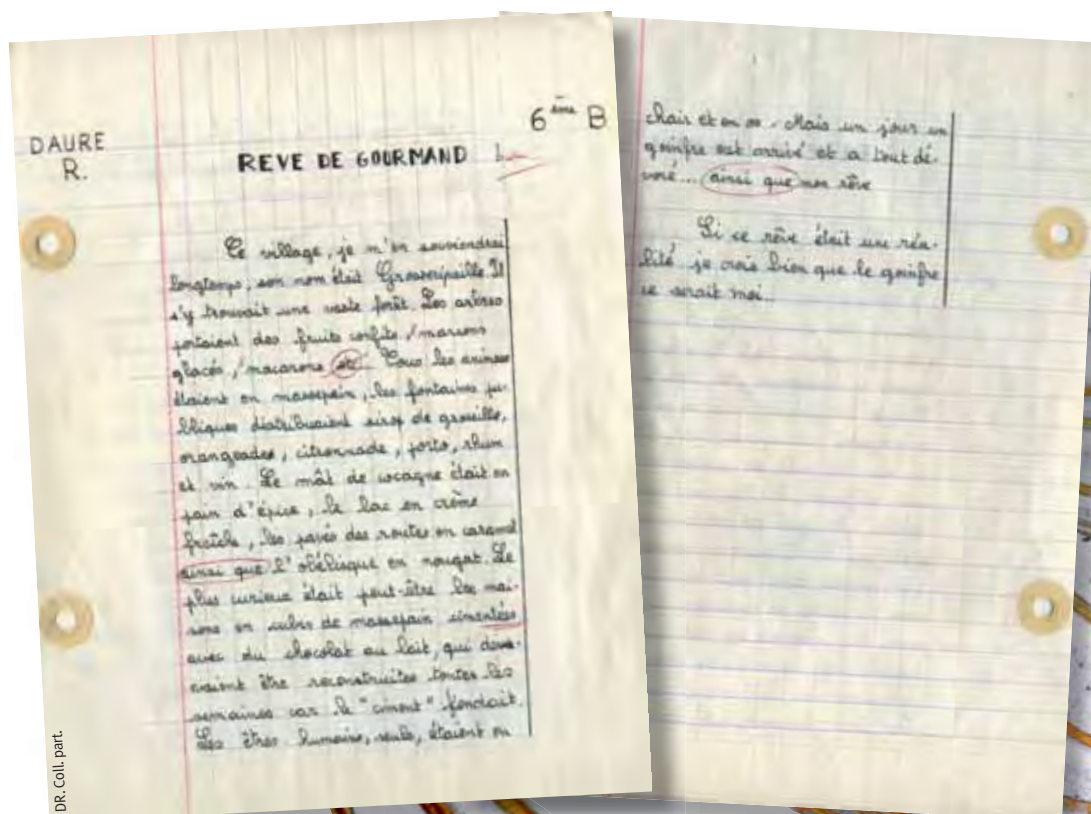 DAURE
R.
6ème B
REVE DE GOURMAND
Ce village, je m'en souviendrai
longtemps, son nom était Grosseripaille Il
s'y trouvait une vaste forêt. Les arbres
portaient des fruits confits, marrons
glacés, macarons etc Tous les animaux
étaient en massepain, les fontaines pu-
bliques distribuaient sirop de groseille,
orangeades, citronnade, porto, rhum
et vin. Le mât de cocagne était en
pain d'épice, le lac en crème
fraîche, les pavés des routes en caramel
ainsi que l'obélisque en nougat. Le
plus curieux était peut-être les mai-
sons en cubes de massepain cimentées
avec du chocolat au lait, qui
être reconstruites toutes les
semaines car le "ciment" fondait.
Les êtres humains, seuls, étaient en
chair et en os. Mais un jour un
goinfre est arrivé et a tout dé-
voré... ainsi que mon rêve
Si ce rêve était une réa-
lité je crois bien que le goinfre
ce serait moi...
DR. Coll. part.